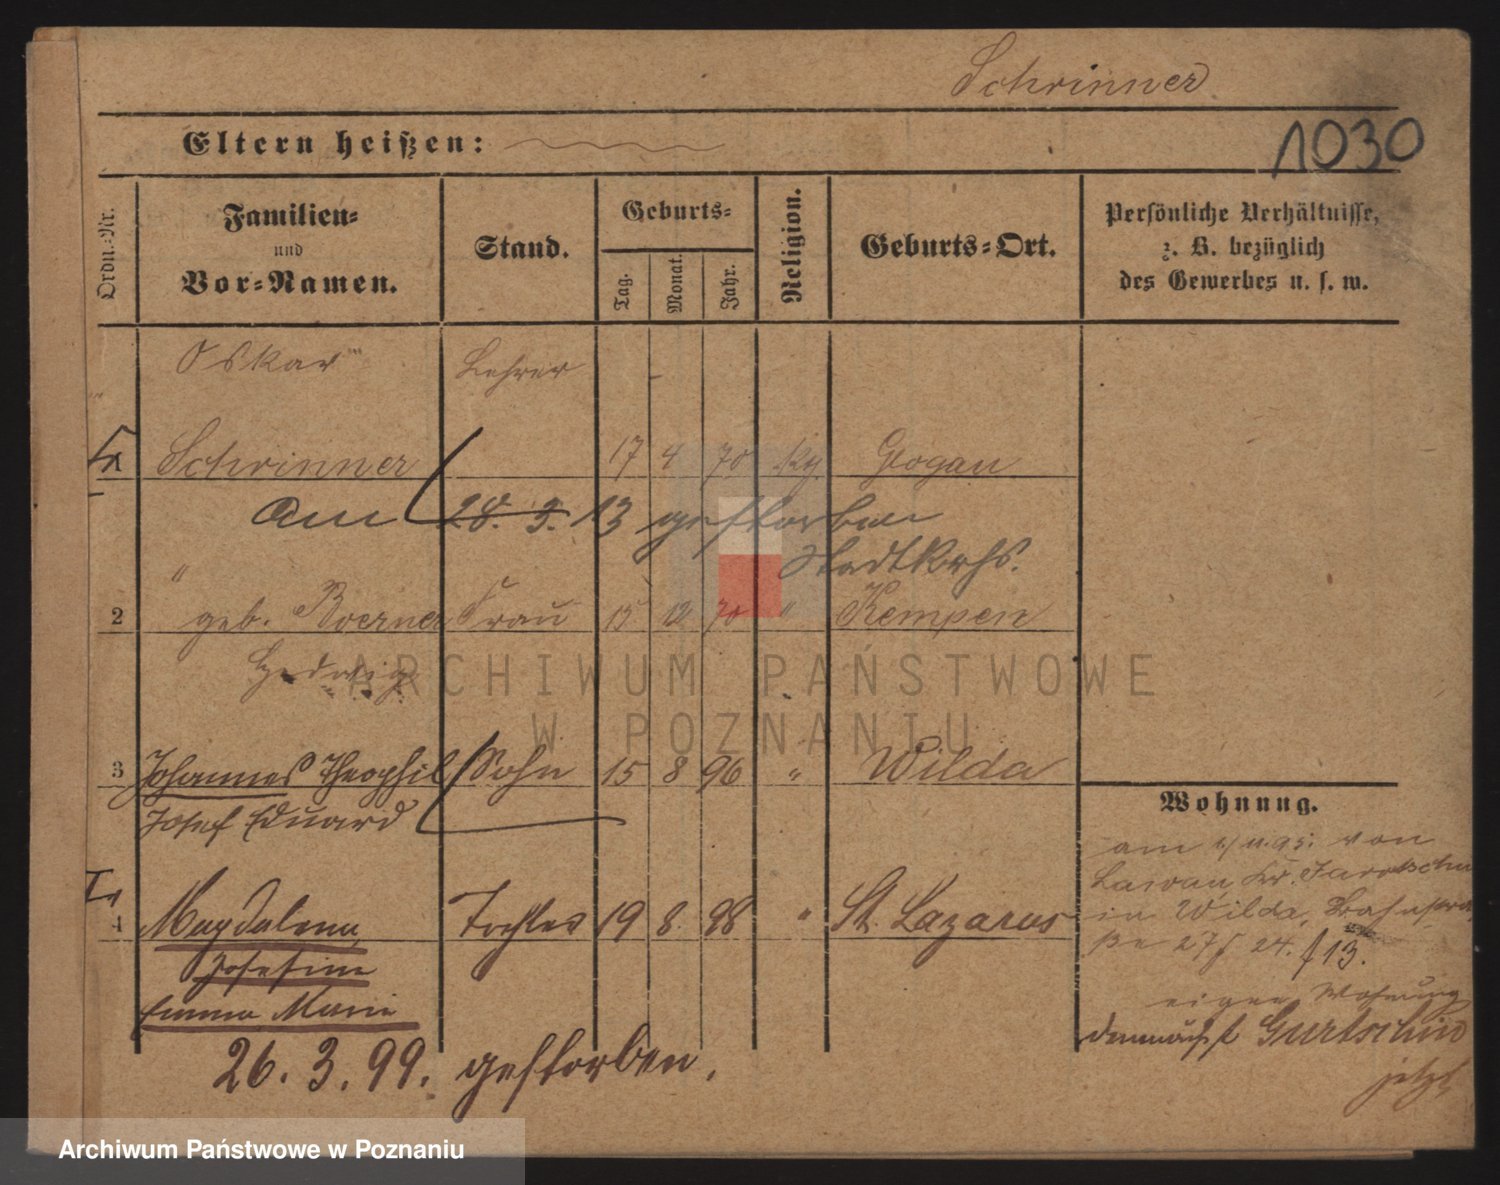 Schrinner
Eltern heißen:
1030
Ordn.-Nr.
Familien-
und
Vor-Namen.
Stand.
Geburts-
Tag.
Monat.
Jahr.
Religion.
Geburts-Ort.
Persönliche Verhältnisse,
z. B. bezüglich
des Gewerbes u. s. w.
Oskar Lehrer
Schrinner 17 4 70 Glogau
Am 28. 3. 13 gestorben
Stadtkrhs.
2 " geb. Boerner Frau 15 12 70 " Kempen
Hedwig
3 Johannes Theophil Sohn 15 8 96 " Wilda
Josef Eduard
4 Magdalena Tochter 19 8. 98 " St. Lazarus
Josefine
Emma Marie
26. 3. 99. gestorben.
Wohnung.
am 1/11.95. von
Kr. Jarotschin
in Wilda,
27/ 24. /13.
eigene Wohnung
demnächst Gurtschin
jetzt
ARCHIWUM PAŃSTWOWE
W POZNANIU
Archiwum Państwowe w Poznaniu